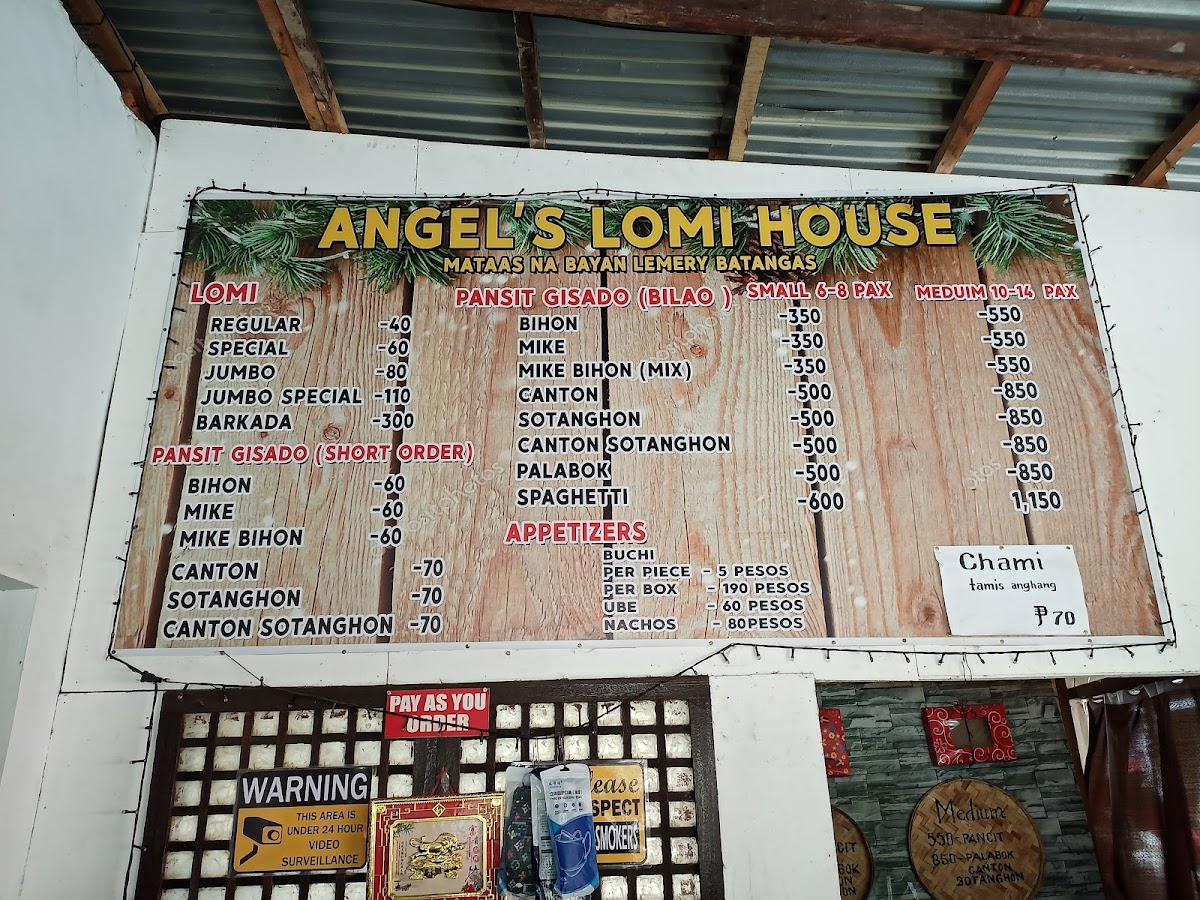 ANGEL'S LOMI HOUSE
MATAAS NA BAYAN LEMERY BATANGAS
LOMI
REGULAR -40
SPECIAL -60
JUMBO -80
JUMBO SPECIAL -110
BARKADA -300
PANSIT GISADO (SHORT ORDER)
BIHON -60
MIKE -60
MIKE BIHON -60
CANTON -70
SOTANGHON -70
CANTON SOTANGHON -70
PANSIT GISADO (BILAO ) SMALL 6-8 PAX MEDUIM 10-14 PAX
BIHON -350 -550
MIKE -350 -550
MIKE BIHON (MIX) -350 -550
CANTON -500 -850
SOTANGHON -500 -850
CANTON SOTANGHON -500 -850
PALABOK -500 -850
SPAGHETTI -600 1,150
APPETIZERS
BUCHI
PER PIECE - 5 PESOS
PER BOX - 190 PESOS
UBE - 60 PESOS
NACHOS - 80PESOS
Chami
tamis anghang
₱70
PAY AS YOU
ORDER
WARNING
THIS AREA IS
UNDER 24 HOUR
VIDEO
SURVEILLANCE
SMOKERS
Medium
550-PANCIT
850-PALABOK
CANTON
SOTANGHON